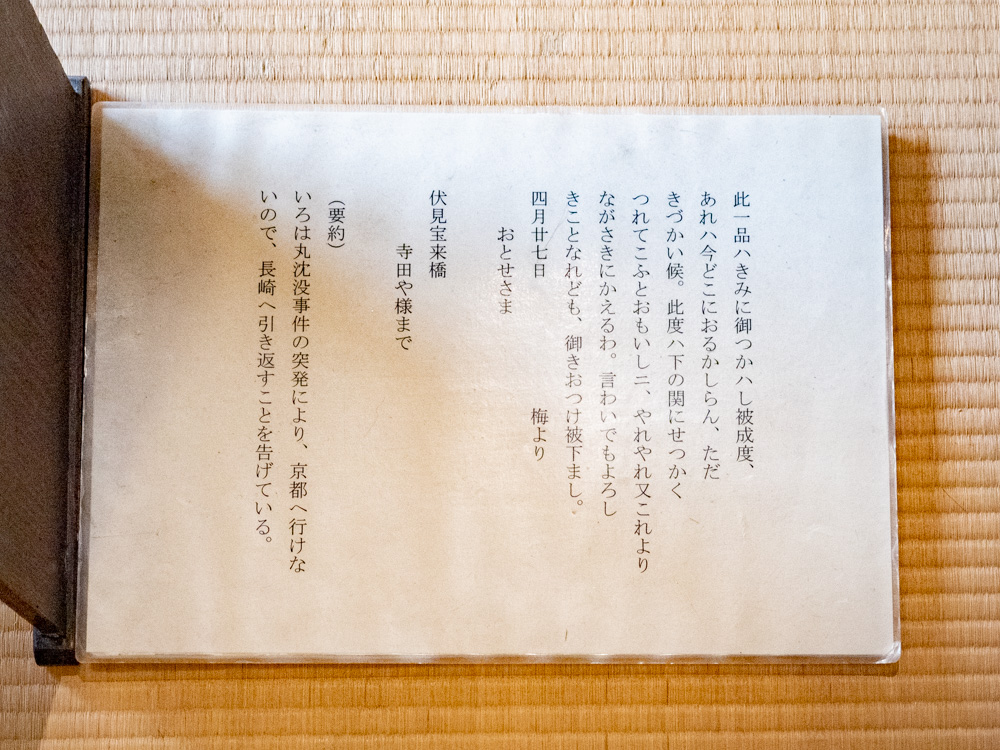 此一品ハきみに御つかハし被成度、
あれハ今どこにおるかしらん、ただ
きづかい候。此度ハ下の関にせつかく
つれてこふとおもいしニ、やれやれ又これより
ながさきにかえるわ。言わいでもよろし
きことなれども、御きおつけ被下まし。
四月廿七日　梅より
おとせさま
伏見宝来橋
寺田や様まで
（要約）
いろは丸沈没事件の突発により、京都へ行けな
いので、長崎へ引き返すことを告げている。